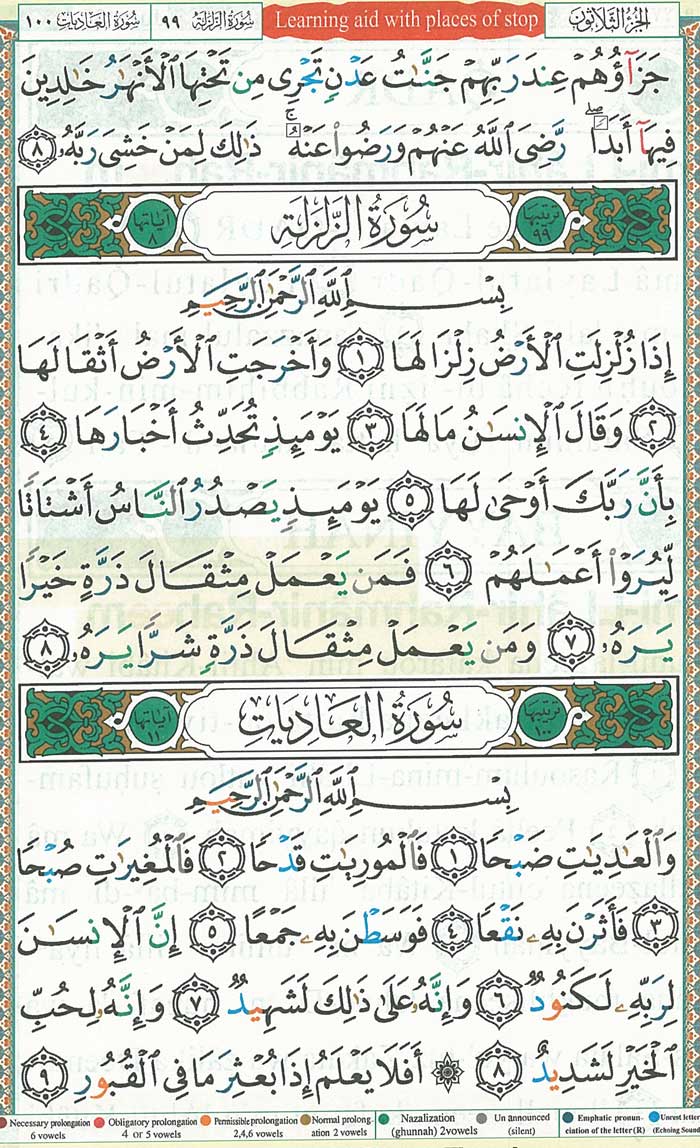 الجزء الثلاثون Learning aid with places of stop سورة الزلزلة ٩٩ سورة العاديات ١٠٠
جَزَآؤُهُمْ عِندَ رَبِّهِمْ جَنَّٰتُ عَدْنٍ تَجْرِى مِن تَحْتِهَا ٱلْأَنْهَٰرُ خَٰلِدِينَ
فِيهَآ أَبَدًا ۖ رَّضِىَ ٱللَّهُ عَنْهُمْ وَرَضُوا۟ عَنْهُ ۚ ذَٰلِكَ لِمَنْ خَشِىَ رَبَّهُۥ ٨
ترتيبها ٩٩ سُورَةُ الزَّلْزَلَةِ آياتها ٨
بِسْمِ ٱللَّهِ ٱلرَّحْمَٰنِ ٱلرَّحِيمِ
إِذَا زُلْزِلَتِ ٱلْأَرْضُ زِلْزَالَهَا ١ وَأَخْرَجَتِ ٱلْأَرْضُ أَثْقَالَهَا
٢ وَقَالَ ٱلْإِنسَٰنُ مَا لَهَا ٣ يَوْمَئِذٍ تُحَدِّثُ أَخْبَارَهَا ٤
بِأَنَّ رَبَّكَ أَوْحَىٰ لَهَا ٥ يَوْمَئِذٍ يَصْدُرُ ٱلنَّاسُ أَشْتَاتًا
لِّيُرَوْا۟ أَعْمَٰلَهُمْ ٦ فَمَن يَعْمَلْ مِثْقَالَ ذَرَّةٍ خَيْرًا
يَرَهُۥ ٧ وَمَن يَعْمَلْ مِثْقَالَ ذَرَّةٍ شَرًّا يَرَهُۥ ٨
ترتيبها ١٠٠ سُورَةُ العَادِيَاتِ آياتها ١١
بِسْمِ ٱللَّهِ ٱلرَّحْمَٰنِ ٱلرَّحِيمِ
وَٱلْعَٰدِيَٰتِ ضَبْحًا ١ فَٱلْمُورِيَٰتِ قَدْحًا ٢ فَٱلْمُغِيرَٰتِ صُبْحًا
٣ فَأَثَرْنَ بِهِۦ نَقْعًا ٤ فَوَسَطْنَ بِهِۦ جَمْعًا ٥ إِنَّ ٱلْإِنسَٰنَ
لِرَبِّهِۦ لَكَنُودٌ ٦ وَإِنَّهُۥ عَلَىٰ ذَٰلِكَ لَشَهِيدٌ ٧ وَإِنَّهُۥ لِحُبِّ
ٱلْخَيْرِ لَشَدِيدٌ ٨ ۞ أَفَلَا يَعْلَمُ إِذَا بُعْثِرَ مَا فِى ٱلْقُبُورِ ٩
Necessary prolongation 6 vowels
Obligatory prolongation 4 or 5 vowels
Permissible prolongation 2,4,6 vowels
Normal prolongation 2 vowels
Nazalization (ghunnah) 2vowels
Un announced (silent)
Emphatic pronunciation of the letter (R)
Unrest letter (Echoing Sound)